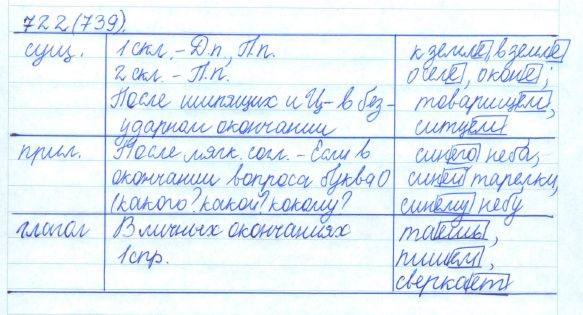 722(739).
сущ. 1 скл. - Д.п, П.п. к земле, в земле
2 скл. - П.п. о селе, окопе;
После шипящих и Ц - в без- товарищем,
ударном окончании ситцем
прил. После мягк. согл. - Если в синего неба,
окончании вопроса буква О синей тарелки,
(какого? какой? кокому? синему небу
глагол В личных окончаниях таешь,
1 спр. пишем,
сверкает